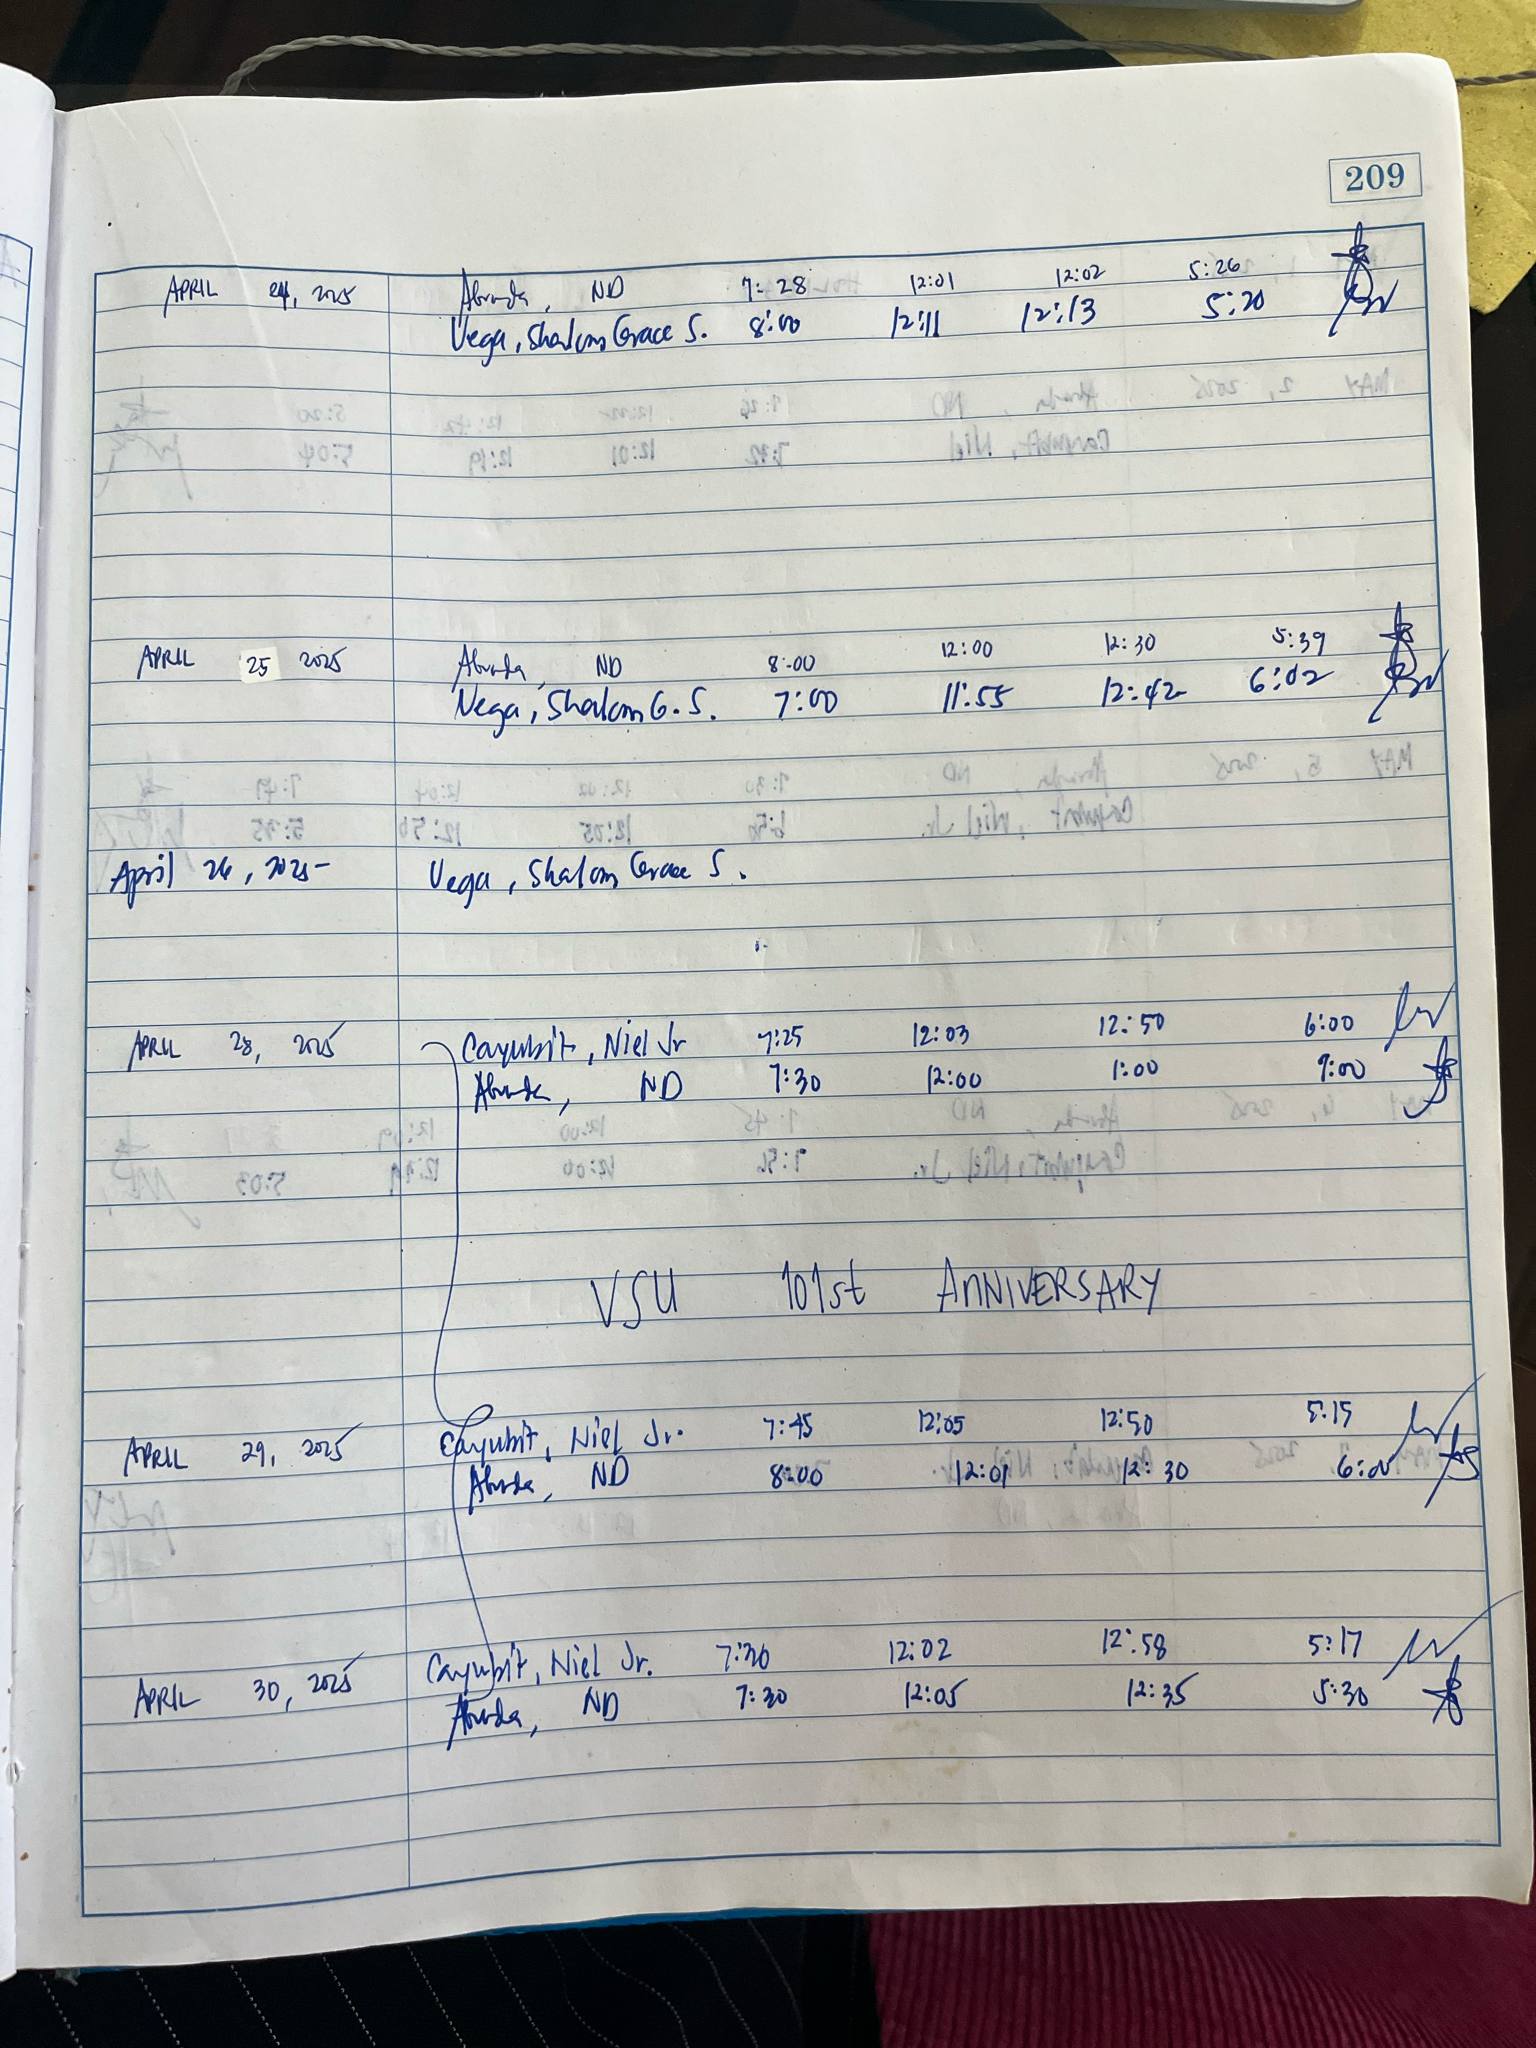 209
APRIL 24, 2025 Abunda, ND 7:28 12:01 12:02 5:26
Vega, Shalom Grace S. 8:00 12:11 12:13 5:20
APRIL 25 2025 Abunda, ND 8:00 12:00 12:30 5:39
Vega, Shalom G. S. 7:00 11:55 12:42 6:02
April 26, 2025 Vega, Shalom Grace S.
APRIL 28, 2025 Cayubit, Niel Jr 7:25 12:03 12:50 6:00
Abunda, ND 7:30 12:00 1:00 9:00
VSU 101st ANNIVERSARY
APRIL 29, 2025 Cayubit, Niel Jr. 7:45 12:05 12:50 5:15
Abunda, ND 8:00 12:01 12:30 6:00
APRIL 30, 2025 Cayubit, Niel Jr. 7:30 12:02 12:58 5:17
Abunda, ND 7:30 12:05 12:35 5:30